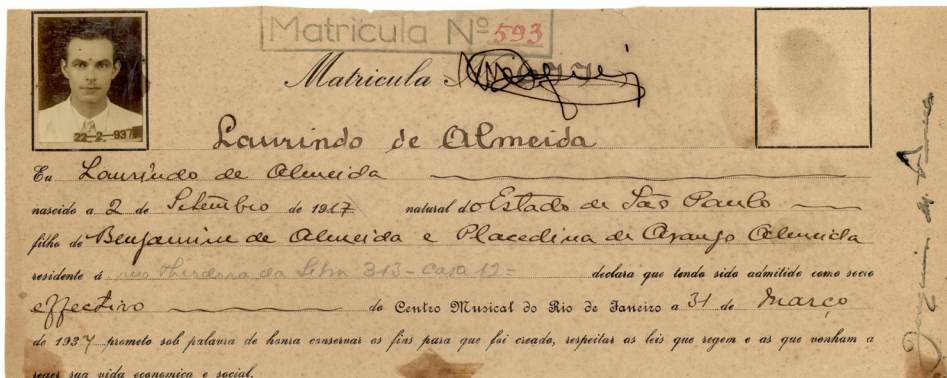 Matricula Nº 593
Matricula
22-2-937
Laurindo de Almeida
Eu Laurindo de Almeida
nascido a 2 de Setembro de 1917 natural do Estado de São Paulo
filho de Benjamim de Almeida e Placedina de Araujo Almeida
residente á rua Theodoro da Silva 313 - casa 12 = declara que tendo sido admitido como socio
effectivo do Centro Musical do Rio de Janeiro a 31 de Março
de 1937 prometo sob palavra de honra conservar os fins para que foi creado, respeitar as leis que regem e as que venham a
reger sua vida economica e social.